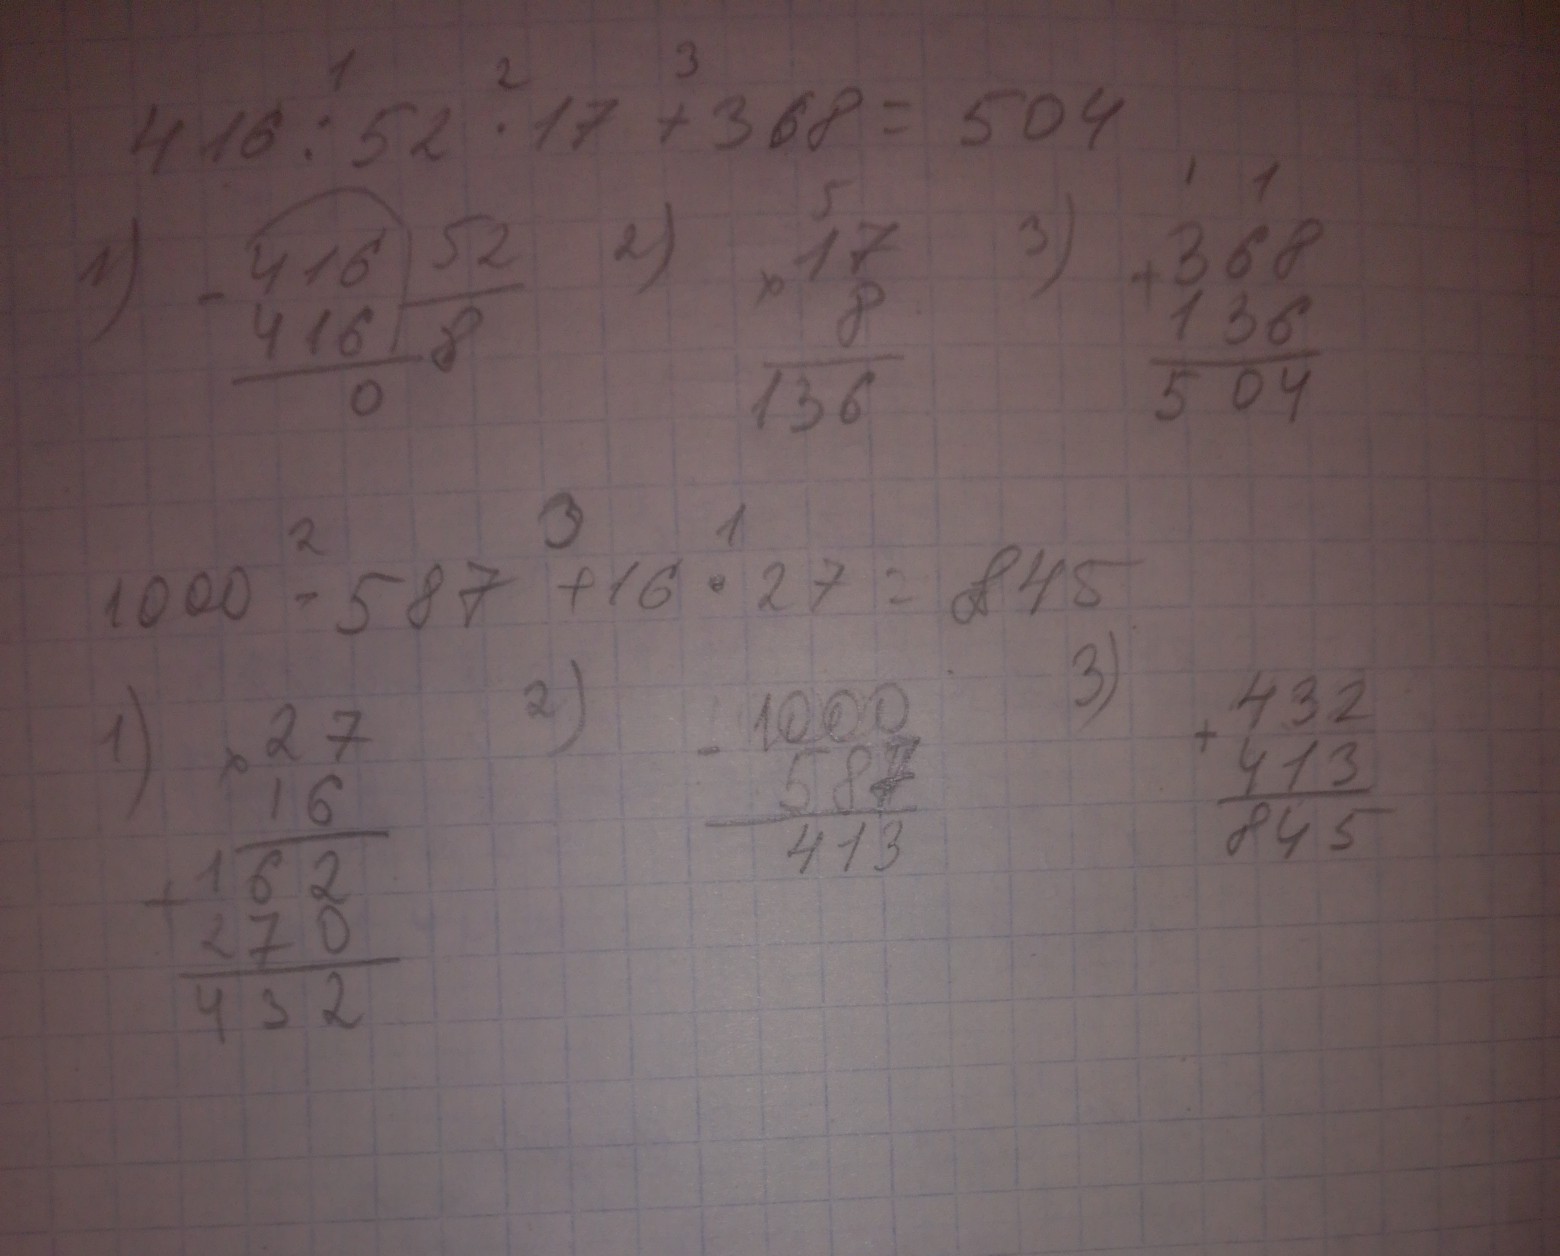 1 2 3
416 : 52 · 17 + 368 = 504
5 1 1
1) - 416 52 2) × 17 3) + 368
416 8 8 136
0 136 504
2 3 1
1000 - 587 + 16 · 27 = 845
1) × 27 2) - 1000 3) + 432
16 587 413
+ 162 413 845
270
432